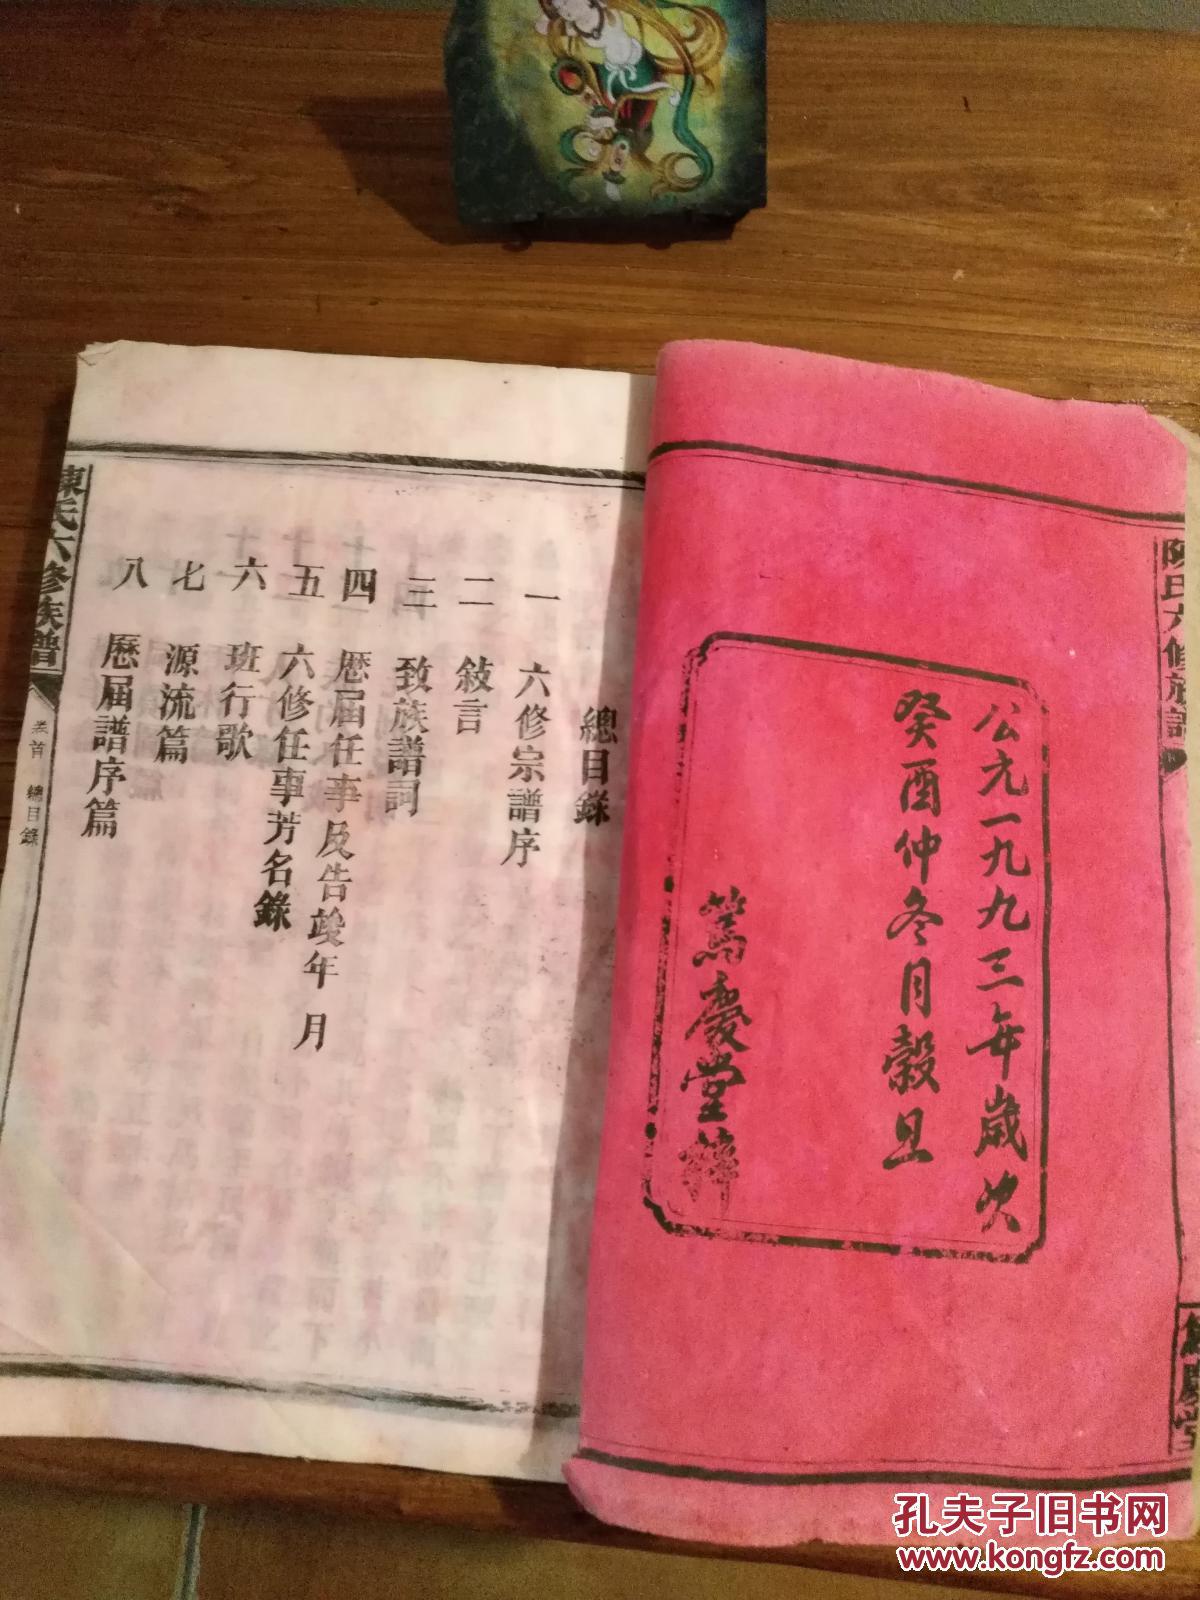 陳氏六修族譜
公元一九九三年歲次
癸酉仲冬月穀旦
篤慶堂梓
篤慶堂
總目錄
一 六修宗譜序
二 敍言
三 致族譜詞
四 歷屆任事及告竣年月
五 六修任事芳名錄
六 班行歌
七 源流篇
八 歷屆譜序篇
陳氏六修族譜
卷首 總目錄
孔夫子旧书网
www.kongfz.com